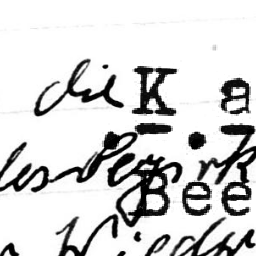 die K a
des Bezirk
Bee
Wieder